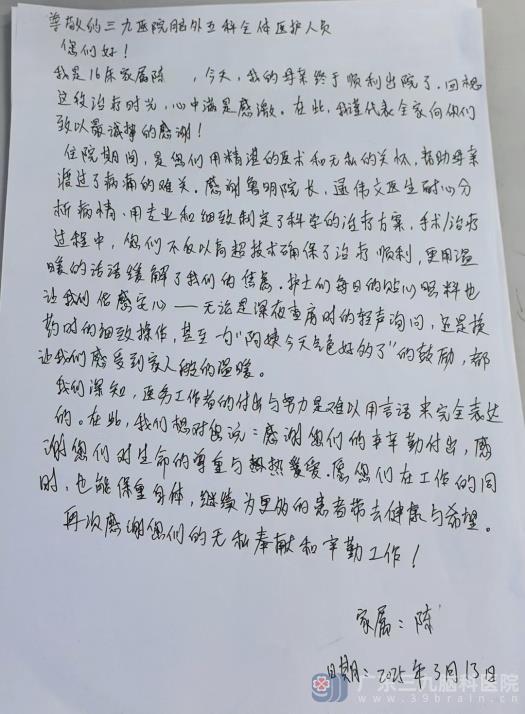 尊敬的三九医院脑外五科全体医护人员
您们好！
我是16床家属陈，今天，我的母亲终于顺利出院了。回想
这段治疗时光，心中满是感激。在此，我谨代表全家向你们
致以最诚挚的感谢！
住院期间，是您们用精湛的医术和无私的关怀，帮助母亲
渡过了病痛的难关。感谢鲁明院长，伟文医生耐心分
析病情、用专业和细致制定了科学的治疗方案，手术/治疗
过程中，您们不仅以高超技术确保了治疗顺利，更用温
暖的话语缓解了我们的焦急。护士们每日的贴心照料也
让我们倍感安心——无论是深夜查房时的轻声询问，还是换
药时的细致操作，甚至一句“阿姨今天气色好多了”的鼓励，都
让我们感受到家人般的温暖。
我们深知，医务工作者的付出与努力是难以用言语来完全表达
的。在此，我们想对您说：感谢您们的辛勤付出，感
谢您们对生命的尊重与热爱。愿您们在工作的同
时，也能保重身体，继续为更多的患者带去健康与希望。
再次感谢您们的无私奉献和辛勤工作！
家属：陈
日期：2025年3月13日
广东三九脑科医院
www.39brain.cn